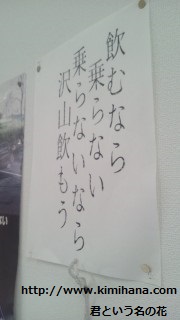 飲むなら
乗らない
乗らないなら
沢山飲もう
http://www.kimihana.com
君という名の花